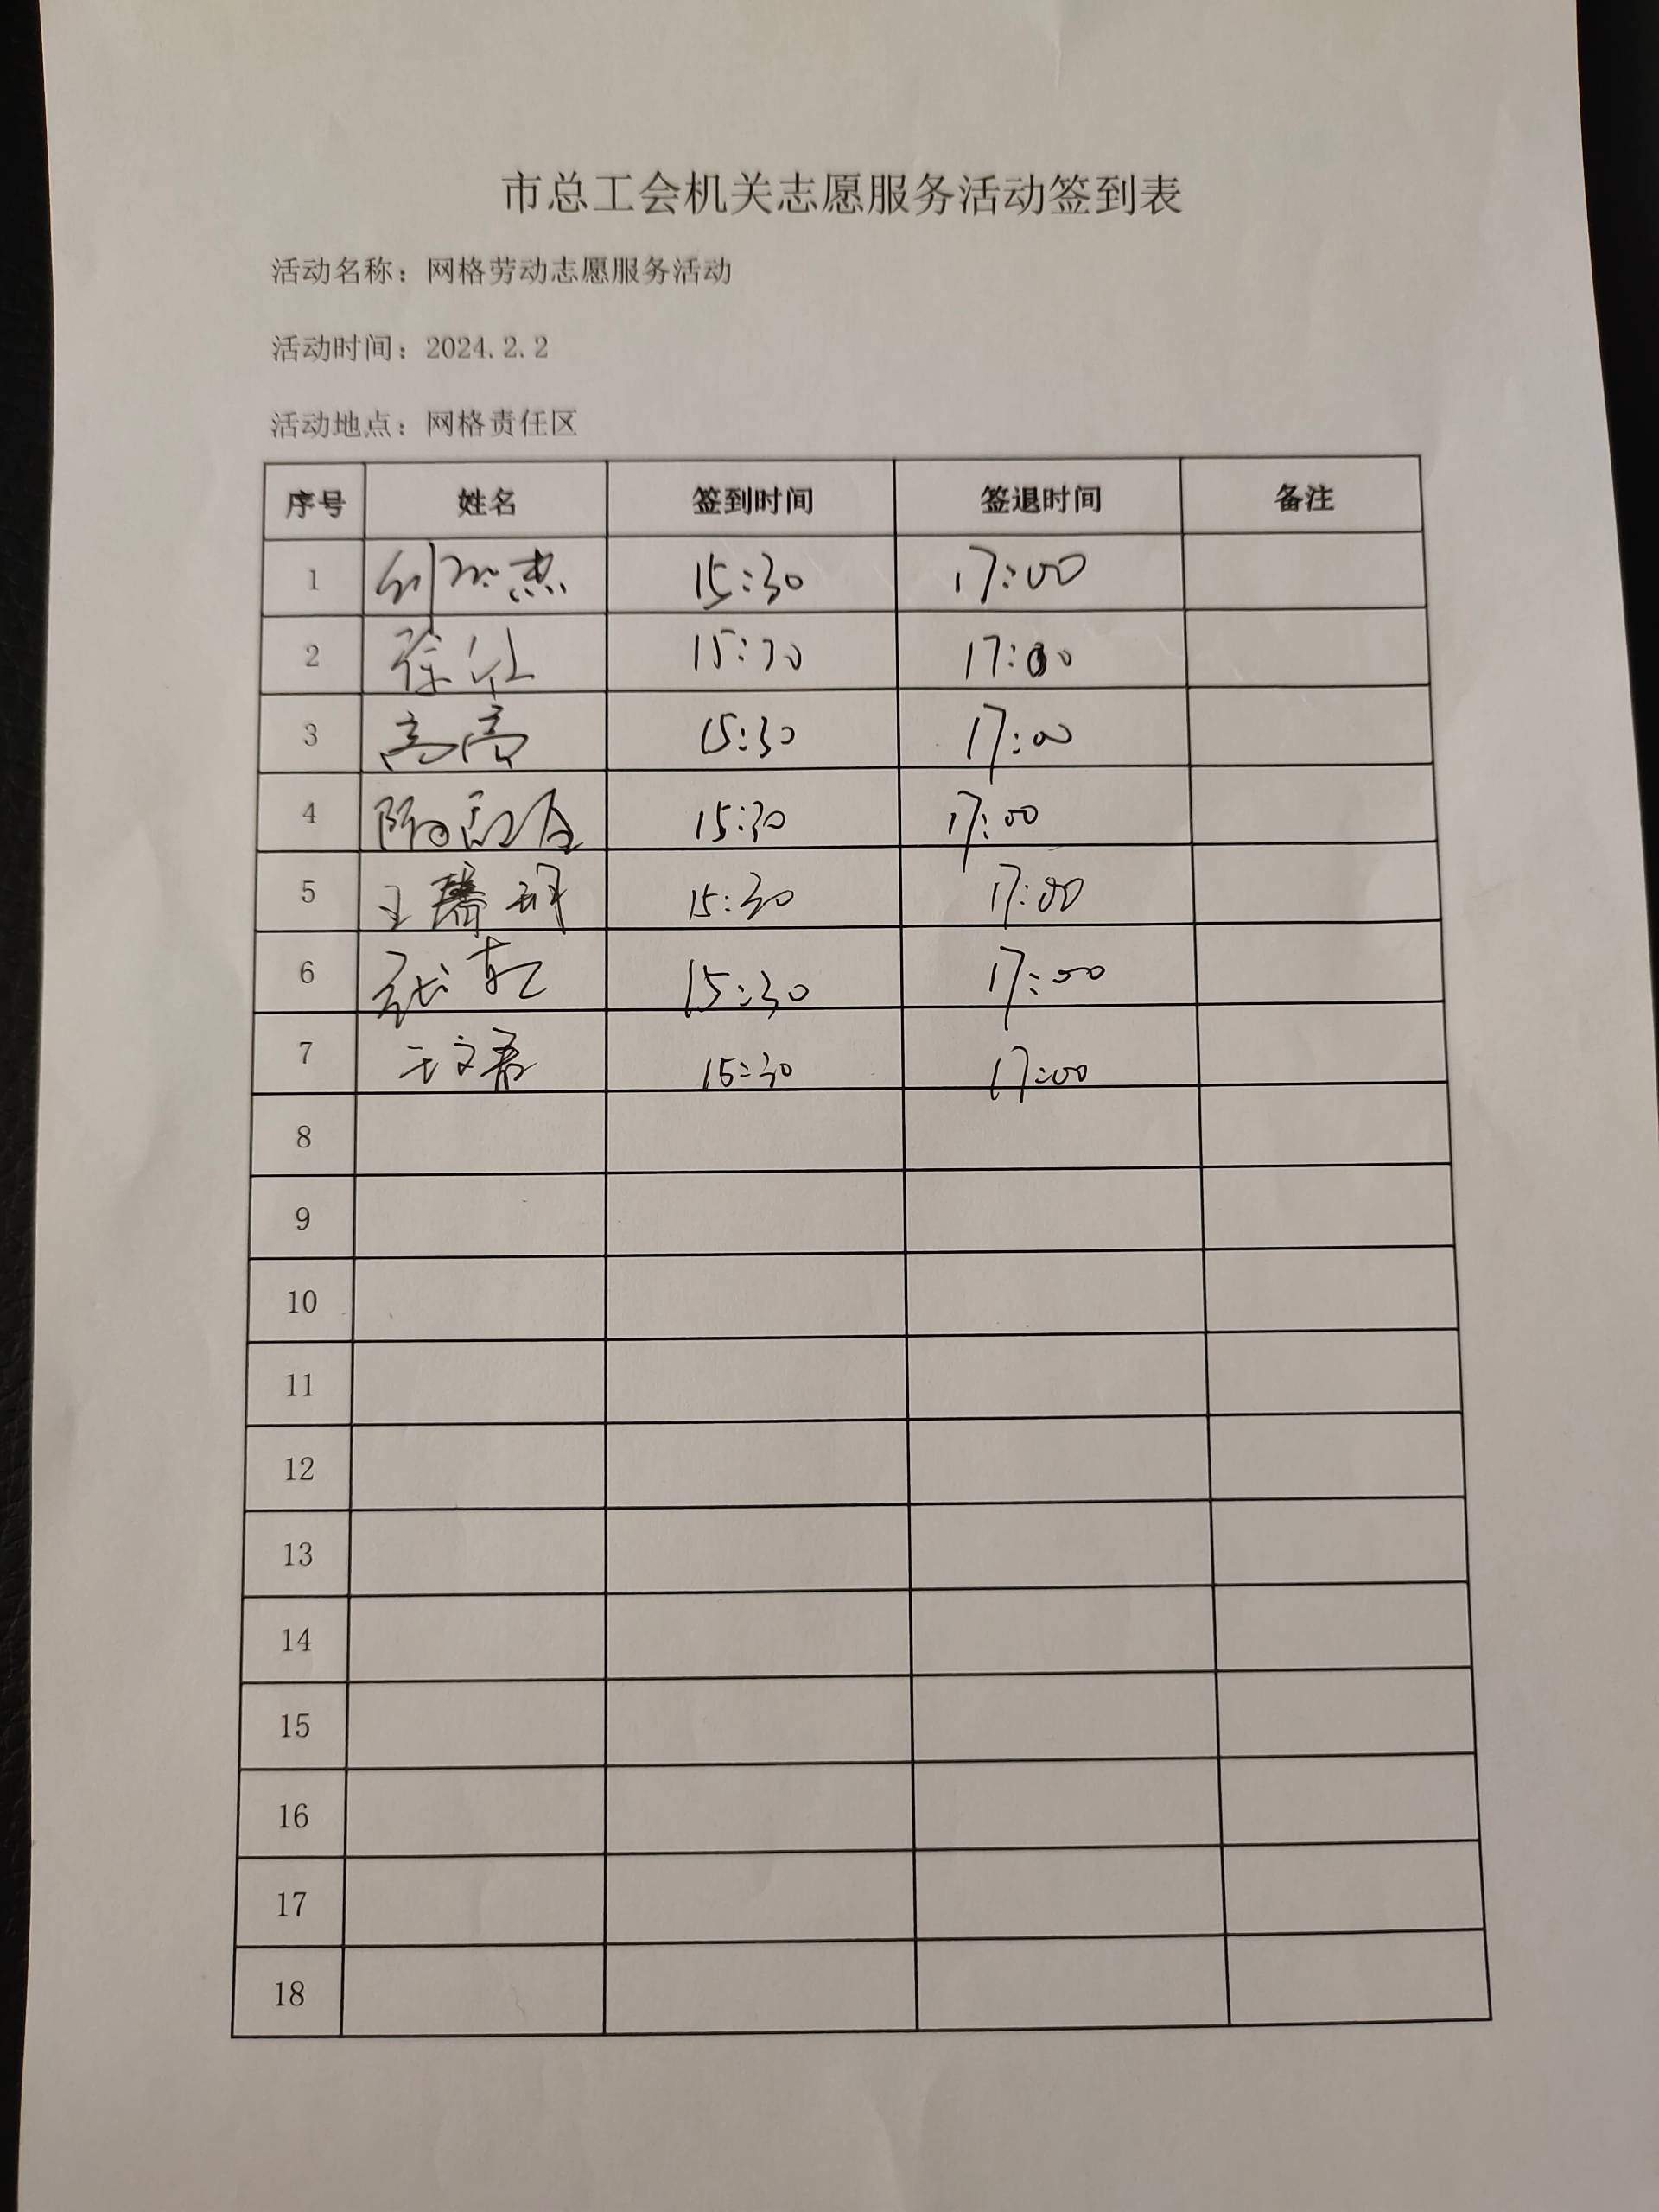 市总工会机关志愿服务活动签到表
活动名称：网格劳动志愿服务活动
活动时间：2024.2.2
活动地点：网格责任区
序号 姓名 签到时间 签退时间 备注
1 15:30 17:00
2 徐 15:30 17:00
3 高 15:30 17:00
4 15:30 17:00
5 王馨 15:30 17:00
6 张乾 15:30 17:00
7 王文君 15:30 17:00
8
9
10
11
12
13
14
15
16
17
18